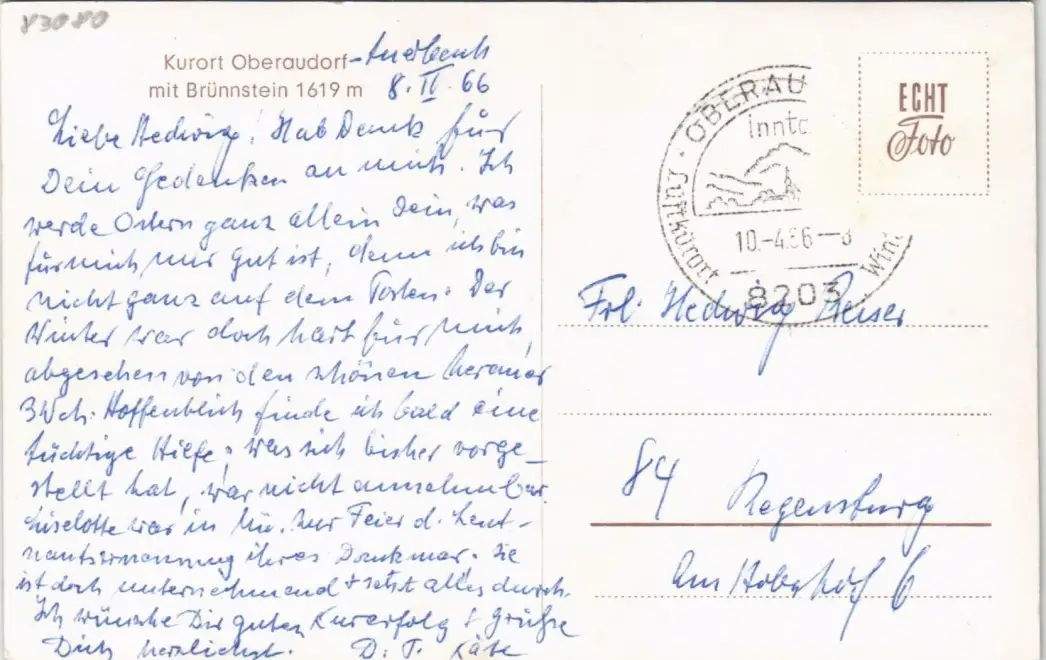 83080
Kurort Oberaudorf-Auerbach
mit Brünnstein 1619 m 8. IV. 66
Liebe Hedwig! Hab Dank für
Dein Gedenken an mich. Ich
werde Ostern ganz allein sein, was
für mich nur gut ist, denn ich bin
nicht ganz auf dem Posten. Der
Winter war doch hart für mich,
abgesehen von den schönen Meraner
3 Wch. Hoffentlich finde ich bald eine
tüchtige Hilfe, was sich bisher vorge-
stellt hat, war nicht annehmbar.
Liselotte war in Mü. zur Feier d. Leut-
nantsernennung ihres Dankmar. Sie
ist doch unternehmend + setzt alles durch.
Ich wünsche Dir guten Kurerfolg + grüße
Dich herzlichst. D. T. Käte
OBERAU
Inntal
Luftkurort
10.-4.66-8
Wint
8203
ECHT
Foto
Frl. Hedwig Reiser
84 Regensburg
Am
6